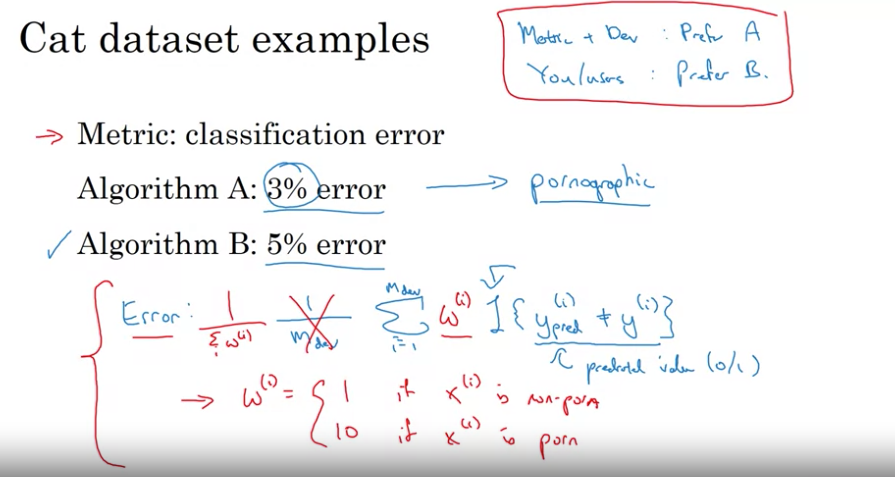 Cat dataset examples
Metric + Dev : Prefer A
You/users : Prefer B.
→ Metric: classification error
Algorithm A: 3% error → pornographic
✓ Algorithm B: 5% error
Error: 1/Σᵢ w⁽ⁱ⁾ 1/m_dev Σ_{i=1}^{m_dev} w⁽ⁱ⁾ I{y_pred⁽ⁱ⁾ ≠ y⁽ⁱ⁾}
predicted value (0/1)
→ w⁽ⁱ⁾ = { 1 if x⁽ⁱ⁾ is non-porn
10 if x⁽ⁱ⁾ is porn